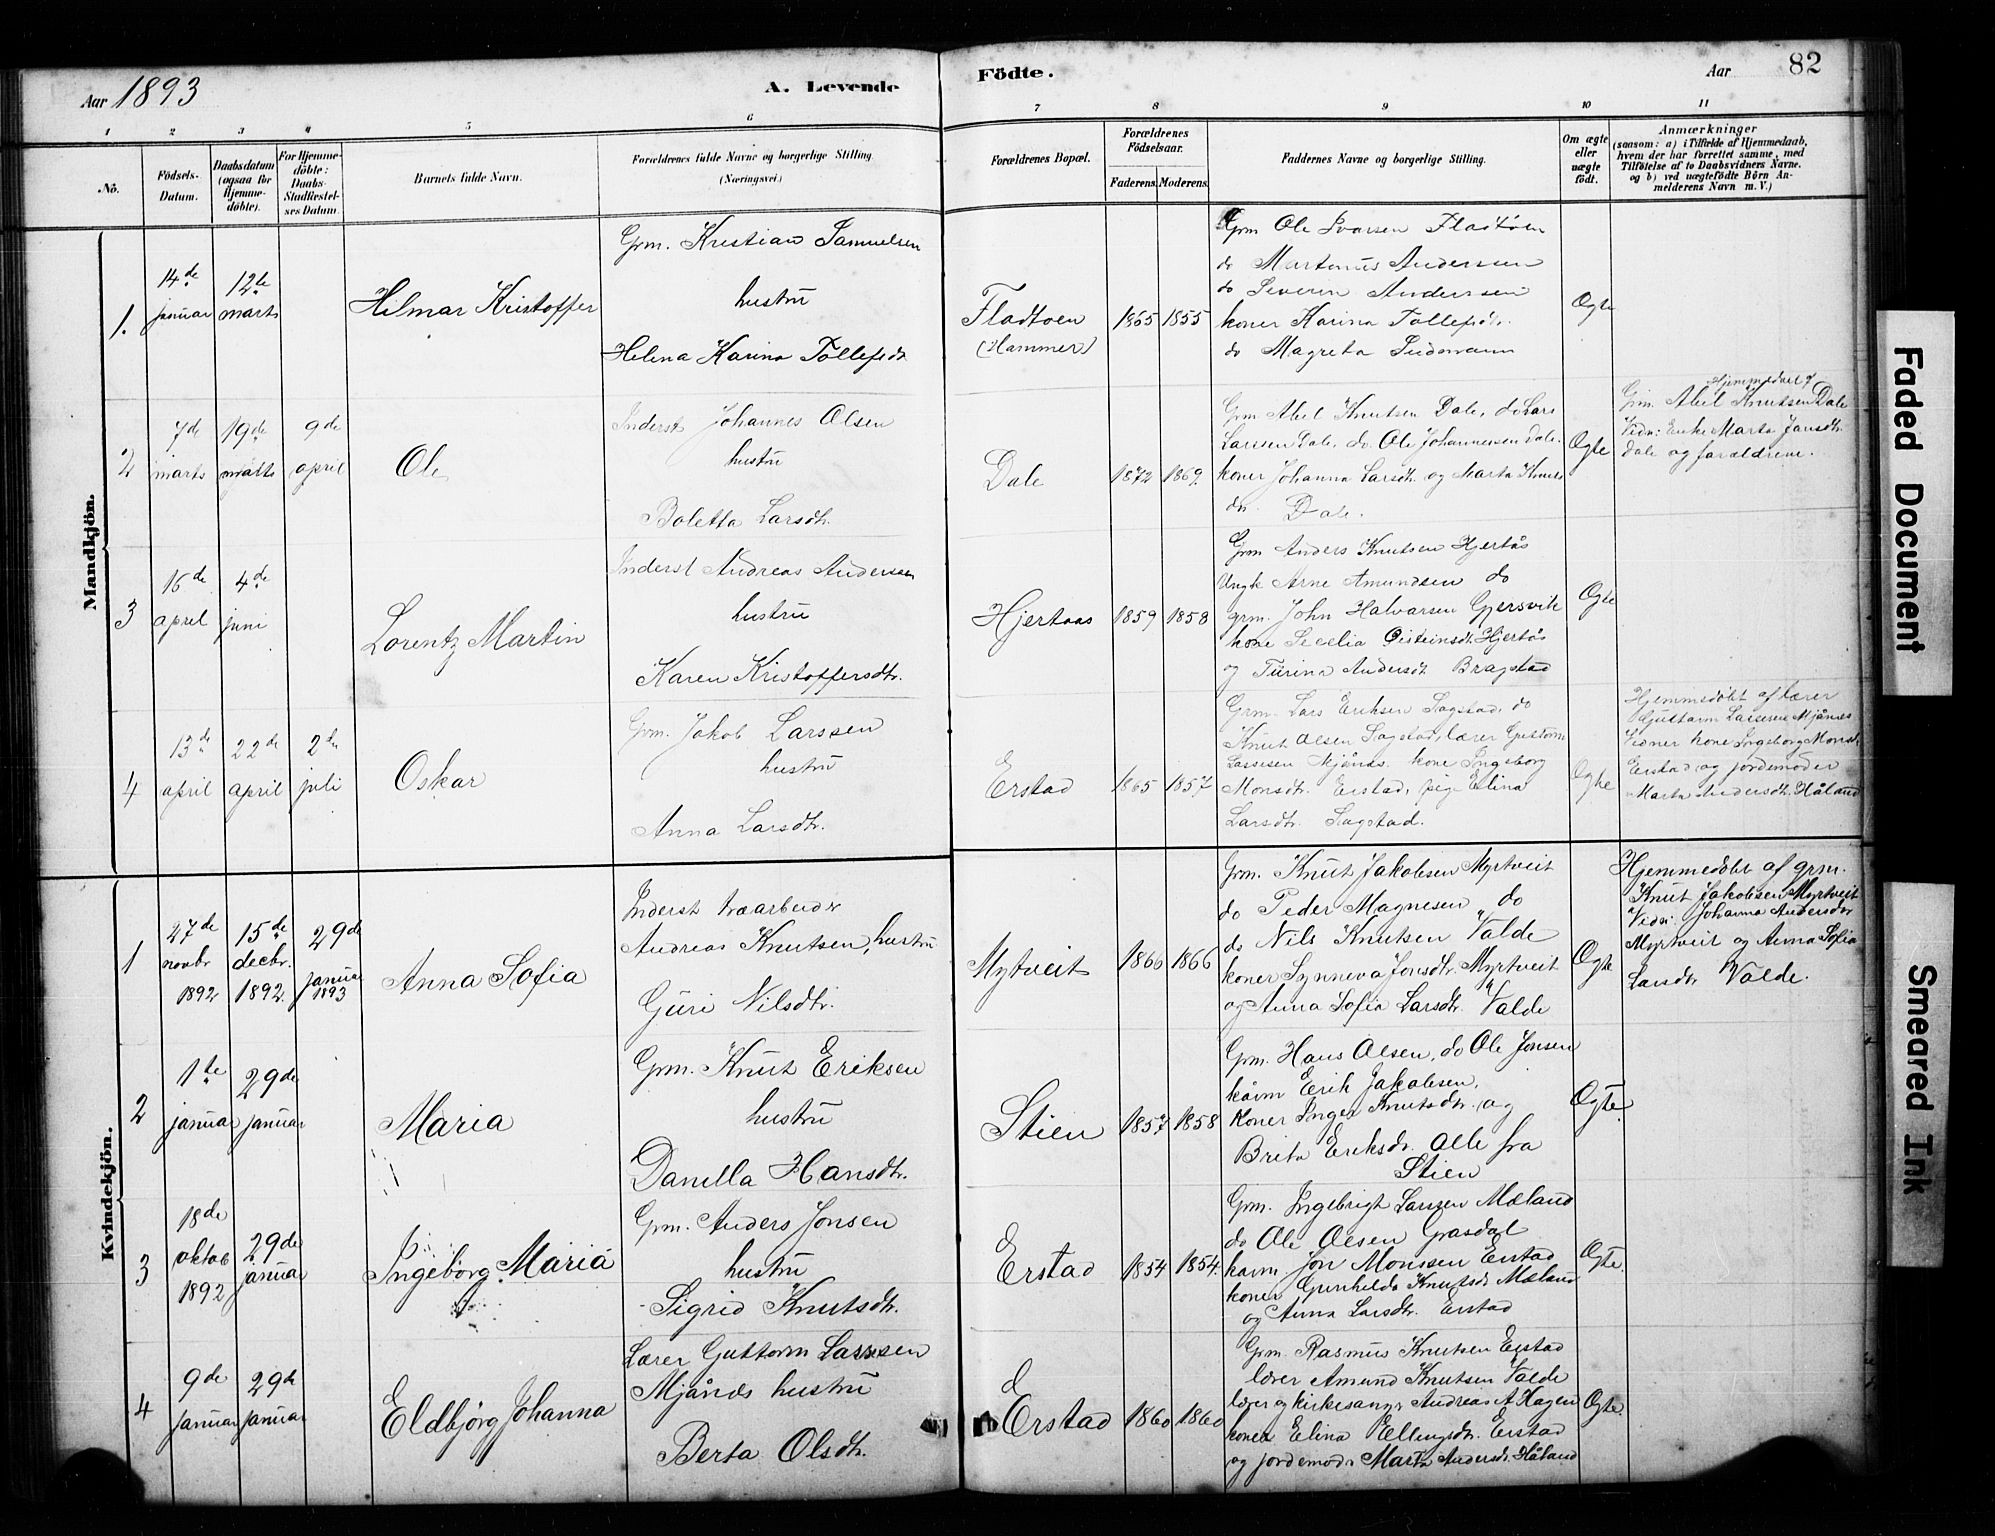 Aar 1893
A. Levende
Födte.
Aar
82
1 2 3 4 5 6 7 8 9 10 11
No.
Födsels-Datum.
Daabsdatum (ogsaa for Hjemmedöbte).
For Hjemmedöbte: Daabs-Stadfestelses Datum.
Barnets fulde Navn.
Forældrenes fulde Navne og borgerlige Stilling.
(Næringsvei.)
Forældrenes Bopæl.
Forældrenes Födselsaar.
Faderens. Moderens.
Faddernes Navne og borgerlige Stilling.
Om ægte eller uægte födt.
Anmærkninger
(saasom: a) i Tilfælde af Hjemmedaab,
hvem der har forrettet samme, med
Tilföielse af to Daabsvidners Navne.
og b) ved uægtefödte Börn An-
melderens Navn m. V.)
Mandkjön.
1.
14de januar
12te marts
Hilmar Kristoffer
Grm. Kristian Samuelsen
hustru
Helena Karina Tollefsdtr.
Fladtoen
(Hammer)
1865 1855
Grm Ole Ivarsen Fladtöen
do Martinus Andersen
do Severin Andersen
koner Karina Tollefsdtr.
do Magreta Sudmann
Ogte
2
7de marts
19de marts
9de april
Ole
Inderst Johannes Olsen
hustru
Boletta Larsdtr.
Dale
1872 1869.
Grm Abel Knutsen Dale, do Lars
Larssen Dale, do. Ole Johannessen Dale.
koner Johanna Larsdtr. og Marta Knuts
dtr. Dale.
Ogte
Hjemmedöbt af
Grm. Abel Knutsen Dale
Vidn: Enke Marta Jansdtr.
Dale og forældrene.
3
16de april
4de juni
Lorentz Martin
Inderst Andreas Andersen
hustru
Karen Kristoffersdtr.
Hjertaas
1859 1858
Grm Anders Knutsen Hjertås
Ungk Arne Amundsen do
grm. John Halvorsen Gjersvik
kone Secelia Oisteinsdt. Hjertås
og Turina Andersdt. Bragstad
Ogte
4
13de april
22de april
2den juli
Oskar
Grm. Jakob Larssen
hustru
Anna Larsdtr.
Erstad
1865 1857
Grm. Lars Eriksen Sagstad, do
Knut Olsen Sagstad, lærer Guttorm
Lassesen Mjånes. kone Ingeborg
Monsdtr. Erstad, pige Elina
Larsdtr. Sagstad.
Ogte
Hjemmedöbt af lærer
Guttorm Lassesen Mjånes
Vidner kone Ingeborg Monsdt.
Erstad og jordemoder
Marta Andersdt. Håland
Kvindekjön.
1
27de novbr 1892
15de decbr. 1892.
29de januar 1893
Anna Sofia
Inderst træarbeider
Andreas Knutsen, hustru
Guri Nilsdtr.
Mytveit
1866 1866
Grm. Knut Jakobsen Myrtveit
do Peder Magnesen do
do Nils Knutsen Valde
koner Synneva Jonsdtr. Myrtveit
og Anna Sofia Larsdtr. Valde
Ogte
Hjemmedöbt af grm.
Knut Jakobsen Myrtveit
Vidn: Johanna Andersdtr
Myrtveit og Anna Sofia
Larsdtr Valde.
2
1te januar
29de januar
Maria
Grm. Knut Eriksen
hustru
Danilla Hansdtr.
Stien
1857 1858
Grm. Hans Olsen, do Ole Jonsen
kårm Erik Jakobsen.
Koner Inger Knutsdtr. og
Brita Eriksdtr. Alle fra
Stien
Ogte.
3
18de oktob 1892
29de januar
Ingeborg Maria
Grm. Anders Jonsen
hustru
Sigrid Knutsdtr.
Erstad
1854 1854.
Grm. Ingebrigt Larssen Mæland
do Ole Olsen Grasdal
kårm. Jon Monssen Erstad
koner Gunhilda Knutsdt Mæland
og Anna Larsdtr. Erstad
Ogte.
4
9de januar
29de januar
Eldbjörg Johanna
Lærer Guttorm Lassesen
Mjånes hustru
Berta Olsdtr.
Erstad
1860 1860
Grm. Rasmus Knutsen Erstad
lærer Amund Knutsen Valde
lærer og kirkesangr Andreas A Hagen
koner Elina Ellingsdt. Erstad
og jordemodr Marta Andersdt. Håland
Ogte.
Faded Document
Smeared Ink